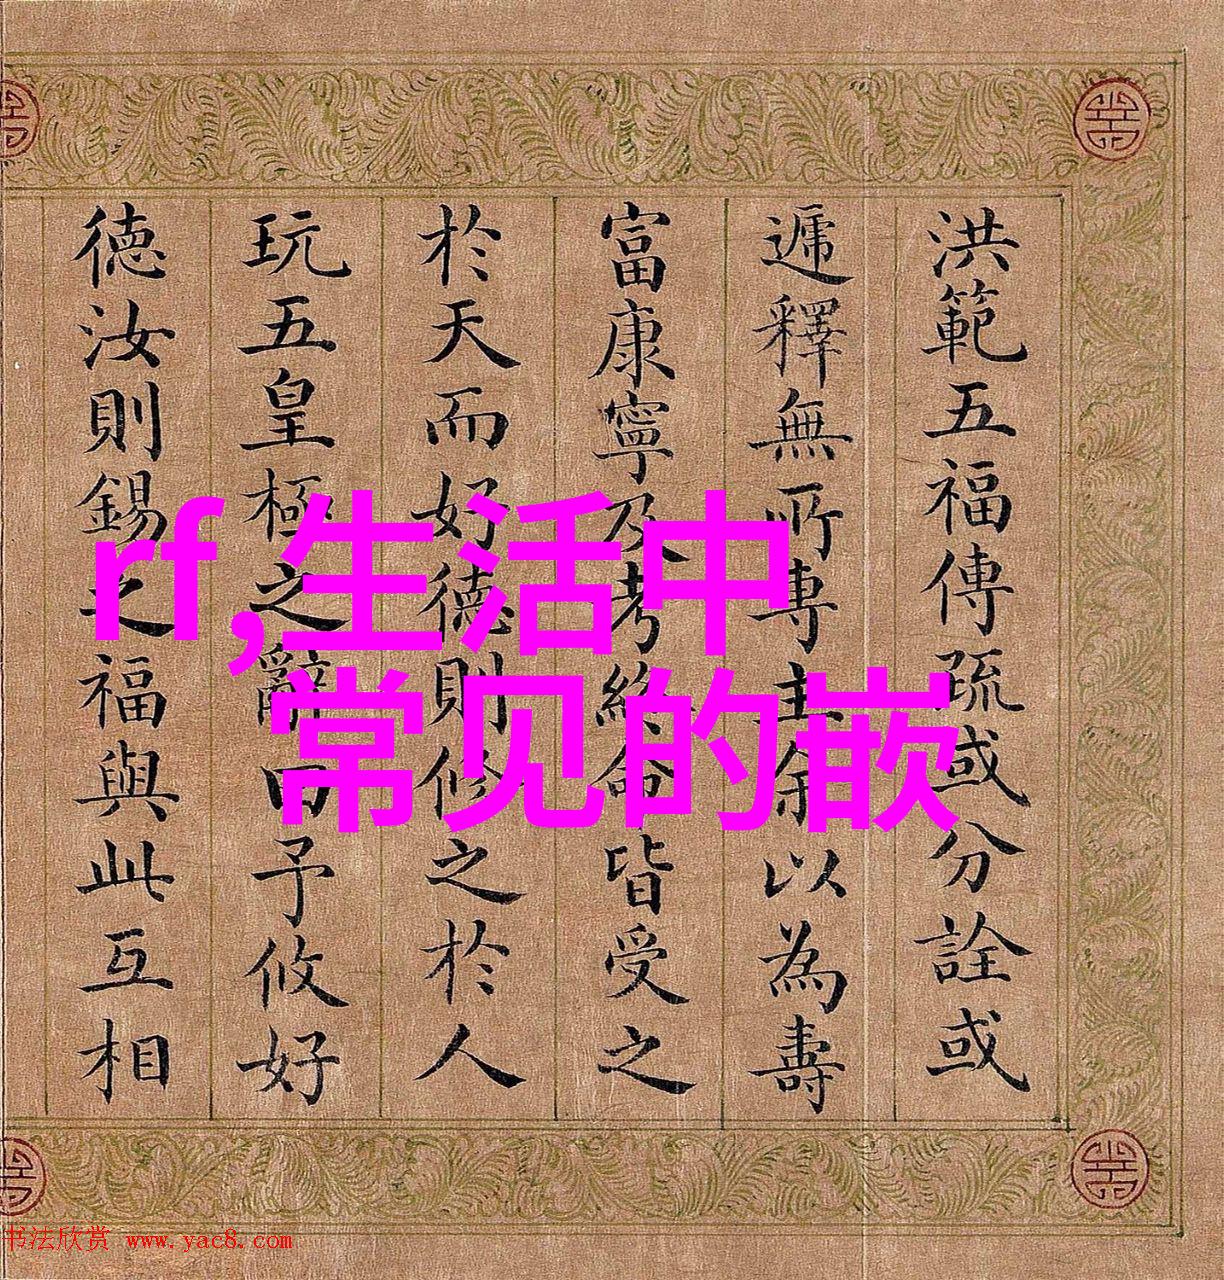 洪範五福傳疏或分詮或
遞釋無所專主余以為壽
富康寧及考終命皆受之
於天而好德則修之於人
玩五皇極之辭曰予攸好
德汝則錫之福與此互相
rf,生活中
常见的嵌
书法欣赏 www.yac8.com